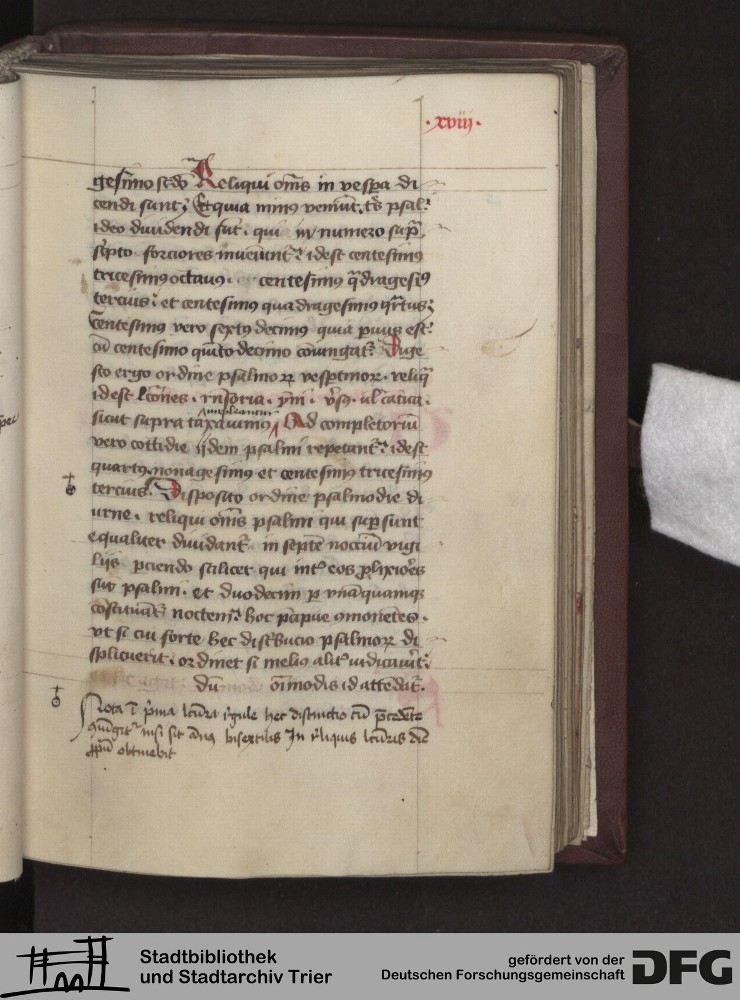 ·xviij·
gesimo scdo Reliqui oms in vespa di
cendi sunt; Et quia minus veniut tres psal
ideo diuidendi sut· qui in numero sup
scpto forciores inueniunt idest centesimus
tricesimus octauus· centesimus qdragesimus
tercius· et centesimus quadragesimus qrtus;
Centesimus vero sextus decimus quia paruus est·
cu centesimo quito decimo coiungat· Dige
sto ergo ordine psalmor vespertinor· reliq
idest lcones· rnsoria· ymi· vsus· ul catica·
impleantur
sicut supra taxauimus Ad completoriu
vero cottidie ijdem psalmi repetant· idest
quartus nonagesimus et centesimus tricesimus
tercius· Disposito ordine psalmodie di
urne· reliqui oms psalmi qui supsunt
equaliter diuidant in septe noctiu vigi
lijs pciendo scilicet qui int eos plixiores
sut psalmi· et duodecim p vnaquamqus
costituat noctem· hoc pcipue monetes·
vt si cui forte hec distbucio psalmor di
splicuerit· ordinet si melius alit iudicauit·
du oimodis id attedat·
Nota i pma lcura regule hec distinctio cu pcedete
giugit nisi sit annus bisextilis In reliquis lcuris die
ppriu obtinebit
Stadtbibliothek
und Stadtarchiv Trier
gefördert von der
Deutschen Forschungsgemeinschaft
DFG